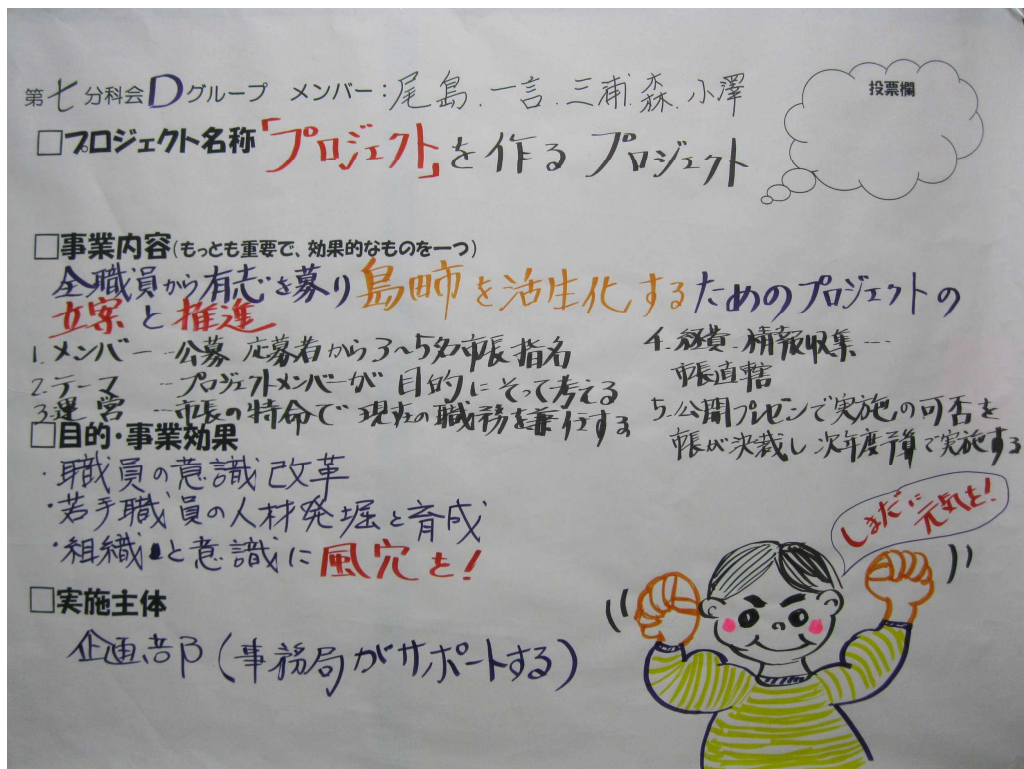 第七分科会Dグループ メンバー:尾島、一言、三浦、森、小澤
投票欄
□プロジェクト名称「プロジェクト」を作るプロジェクト
□事業内容(もっとも重要で、効果的なものを一つ)
全職員から有志を募り島田市を活生化するためのプロジェクトの
立案と推進
1.メンバー…公募 応募者から3~5名市長指名
2.テーマ…プロジェクトメンバーが目的にそって考える
3.運営…市長の特命で現在の職務を兼行する
4.経費、情報収集…
市長直轄
5.公開プレゼンで実施の可否を
市長が決裁し次年度予算で実施する
□目的・事業効果
・職員の意識改革
・若手職員の人材発掘と育成
・組織と意識に風穴を!
□実施主体
企画部(事務局がサポートする)
しまだに
元気を!